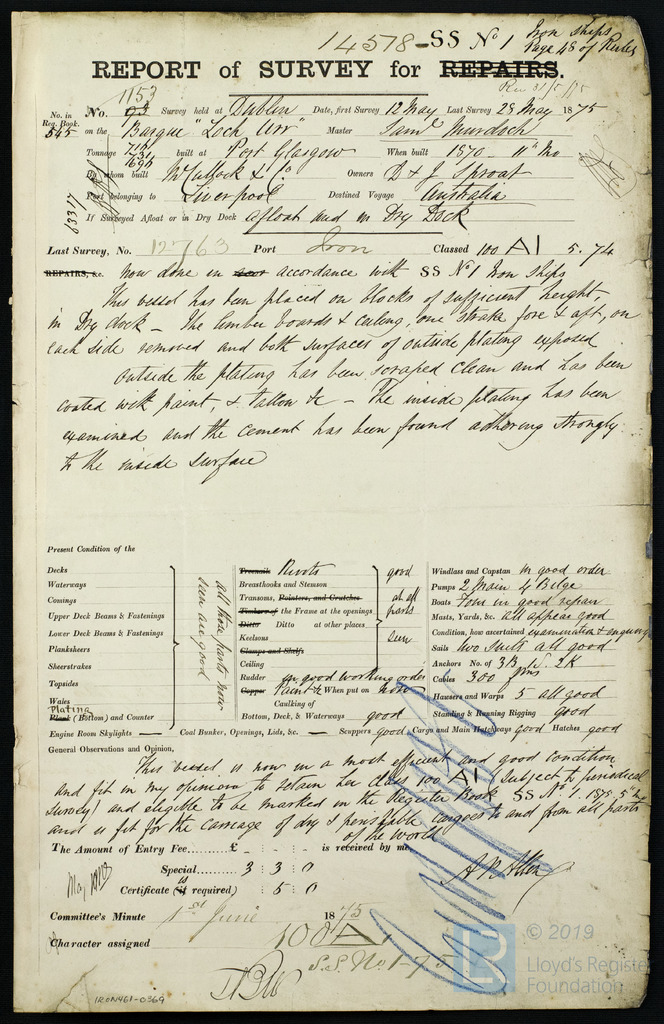 14578 - SS No 1
Iron Ships
Page 48 of Rules
REPORT of SURVEY for REPAIRS.
1153
No. in Reg. Book.
545
No. 93 Survey held at Dublin Date, first Survey 12 May Last Survey 29 May 1875
on the Barque "Loch Urr" Master Saml Murdoch
Tonnage built at Port Glasgow When built 1870 - 11th Mo
By whom built McCullock & Co Owners D & J Sproat
Port belonging to Liverpool Destined Voyage Australia
If Surveyed Afloat or in Dry Dock afloat and in Dry Dock
Last Survey, No. 12763 Port Iron Classed 100 A1 5.74
REPAIRS, &c. now done in accordance with SS No 1 Iron Ships
This vessel has been placed on blocks of sufficient height,
in Dry dock - The limber boards & ceiling, one strake fore & aft, on
each side removed and both surfaces of outside plating exposed
Outside the plating has been scraped clean and has been
coated with paint, & tallow &c - The inside plating has been
examined and the cement has been found adhering strongly
to the inside surface
Present Condition of the
Decks
Waterways
Comings
Upper Deck Beams & Fastenings
Lower Deck Beams & Fastenings
Planksheers
Sheerstrakes
Topsides
Wales
Plating
Plank (Bottom) and Counter
all those parts now
seen are good
Treenails Rivets good
Breasthooks and Stemson
Transoms, Pointers, and Crutches at all
Timbers of the Frame at the openings parts
Ditto Ditto at other places
Keelsons seen
Clamps and Shelfs
Ceiling
Rudder in good working order
Copper Paint &c When put on now
Caulking of
Bottom, Deck, & Waterways good
Windlass and Capstan in good order
Pumps 2 Main & Bilge
Boats Four in good repair
Masts, Yards, &c. all appear good
Condition, how ascertained examination & enquiry
Sails two suits all good
Anchors No. of 3B 1S. 2K
Cables 300 fms
Hawsers and Warps 5 all good
Standing & Running Rigging good
Engine Room Skylights — Coal Bunker, Openings, Lids, &c. — Scuppers good Cargo and Main Hatchways good Hatches good
General Observations and Opinion,
This vessel is now in a most efficient and good condition
and fit in my opinion to retain her class 100 A1 (Subject to periodical
survey) and eligible to be marked in the Register Book SS No 1. 1875. 5th Mo
and is fit for the carriage of dry & perishable cargoes to and from all parts
of the World
The Amount of Entry Fee......... £ : - : - is received by me,
Special...... 3 : 3 : 0
Certificate (if required) : 5 : 0
Committee's Minute 1st June 1875
Character assigned 100 A1
S.S. No 1-75
IRON461-0369
© 2019
Lloyd's Register
Foundation